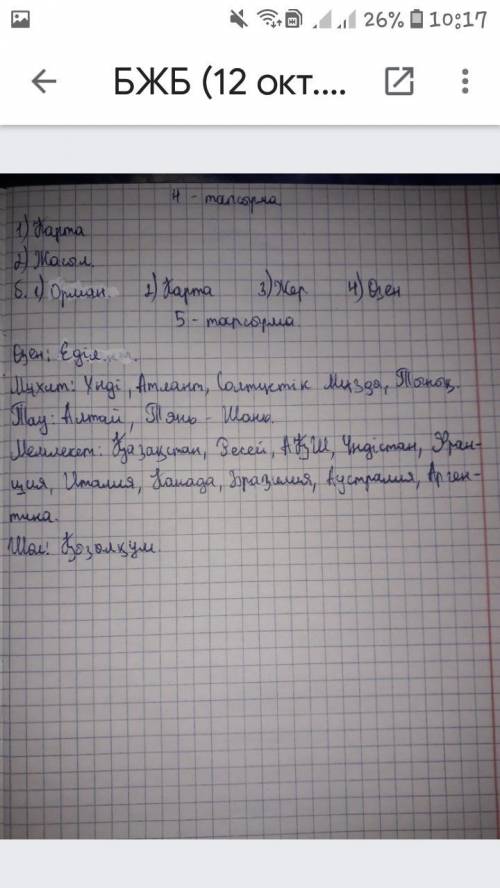 26% 10:17
БЖБ (12 окт....
4 - тапсырма
1) Карта
2) Жасыл.
б. 1) Орман. 2) Карта 3) Жер 4) Өзен
5 - тапсырма
Өзен: Еділ
Мұхит: Үнді, Атлант, Солтүстік Мұзды, Тынық.
Тау: Алтай, Тянь - Шань.
Мемлекет: Қазақстан, Ресей, АҚШ, Үндістан, Фран-
ция, Италия, Канада, Бразилия, Аустралия, Арген-
тина.
Шөл: Қызылқұм.